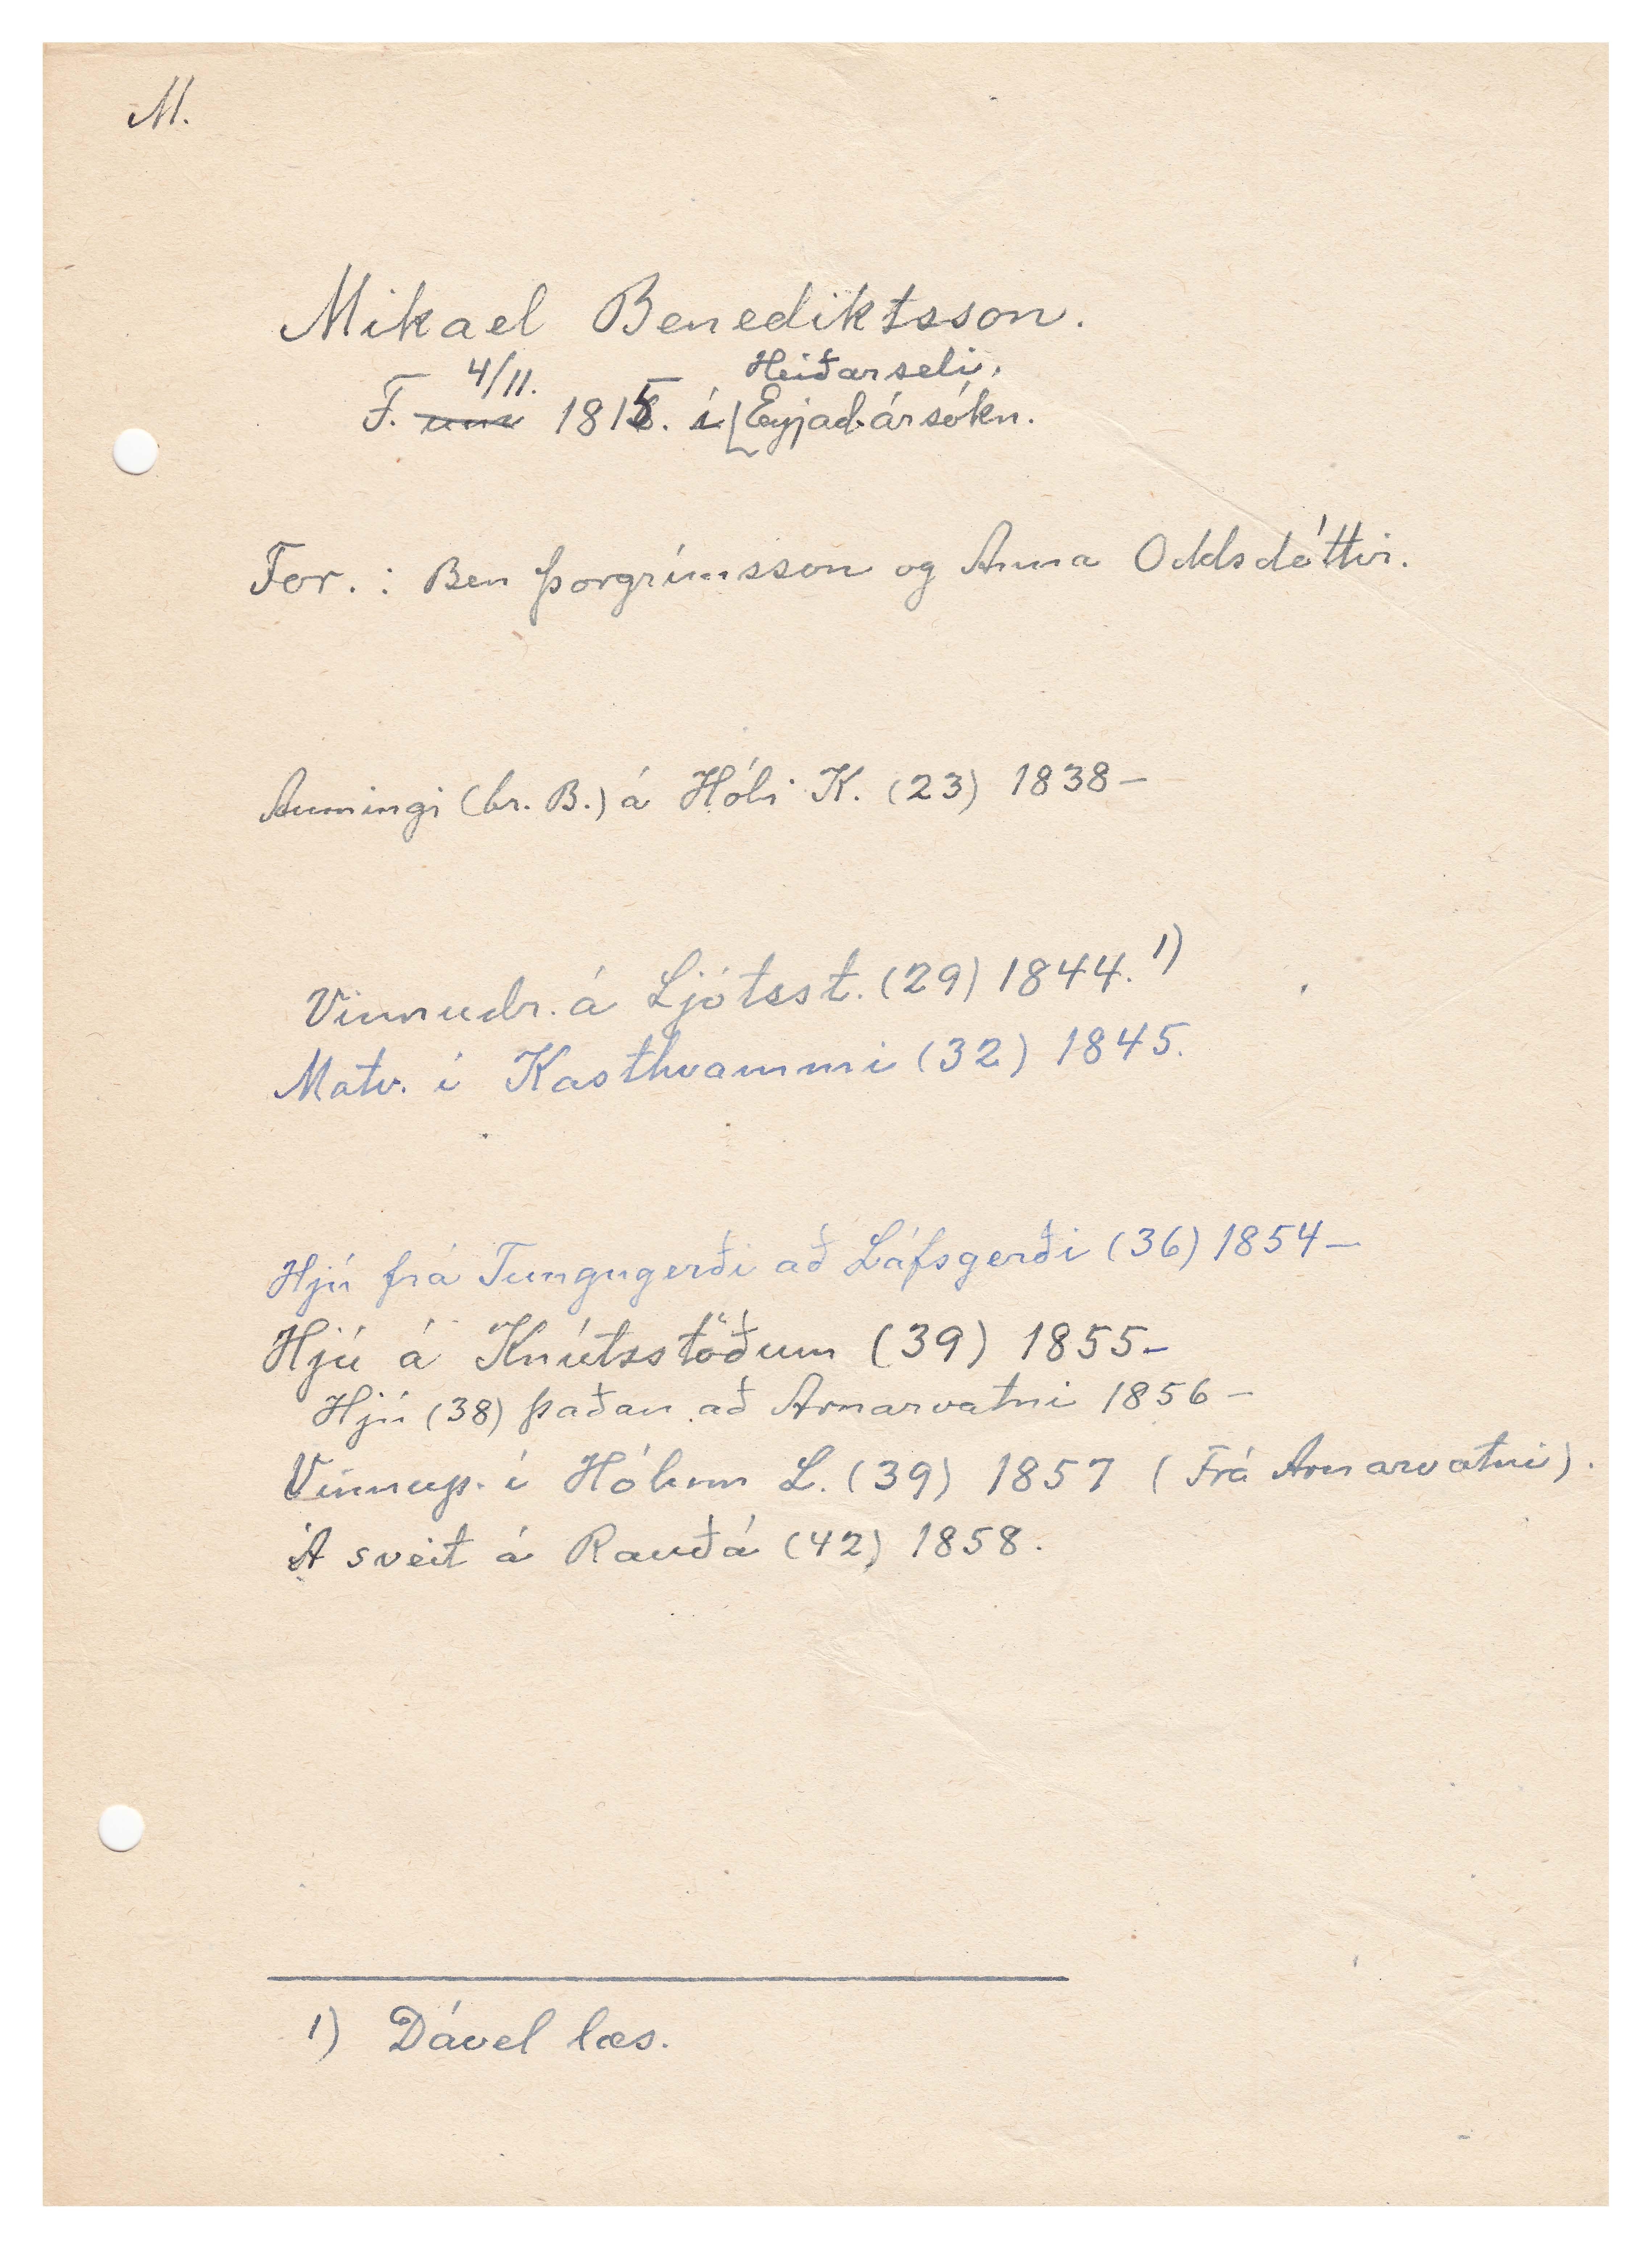 M.
Mikael Benediktsson.
4/11. Heiðarseli,
F. um 1815. í Eyjad.ársókn.
For. : Ben Þorgrímsson og Anna Oddsdóttir.
Aumingi (br. B.) á Hóli K. (23) 1838-
Vinnudr. á Ljótsst. (29) 1844. 1)
Matv. í Kasthvammi (32) 1845.
Hjú frá Tungugerði að Láfsgerði (36) 1854-
Hjú á Knútsstöðum (39) 1855-
Hjú (38) þaðan að Arnarvatni 1856-
Vinnup. í Hólum L. (39) 1857 (Frá Arnarvatni).
Á sveit á Rauðá (42) 1858.
1) Dável læs.